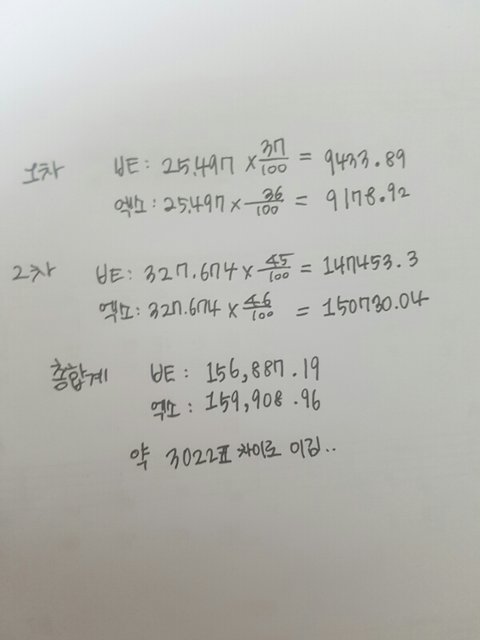 1차 ㅂE: 25,497 × 37/100 = 9433.89
엑소: 25,497 × 36/100 = 9178.92
2차 ㅂE: 327.674 × 45/100 = 147453.3
엑소: 327.674 × 46/100 = 150730.04
총합계 ㅂE: 156,887.19
엑소: 159,908.96
약 3022표 차이로 이김..